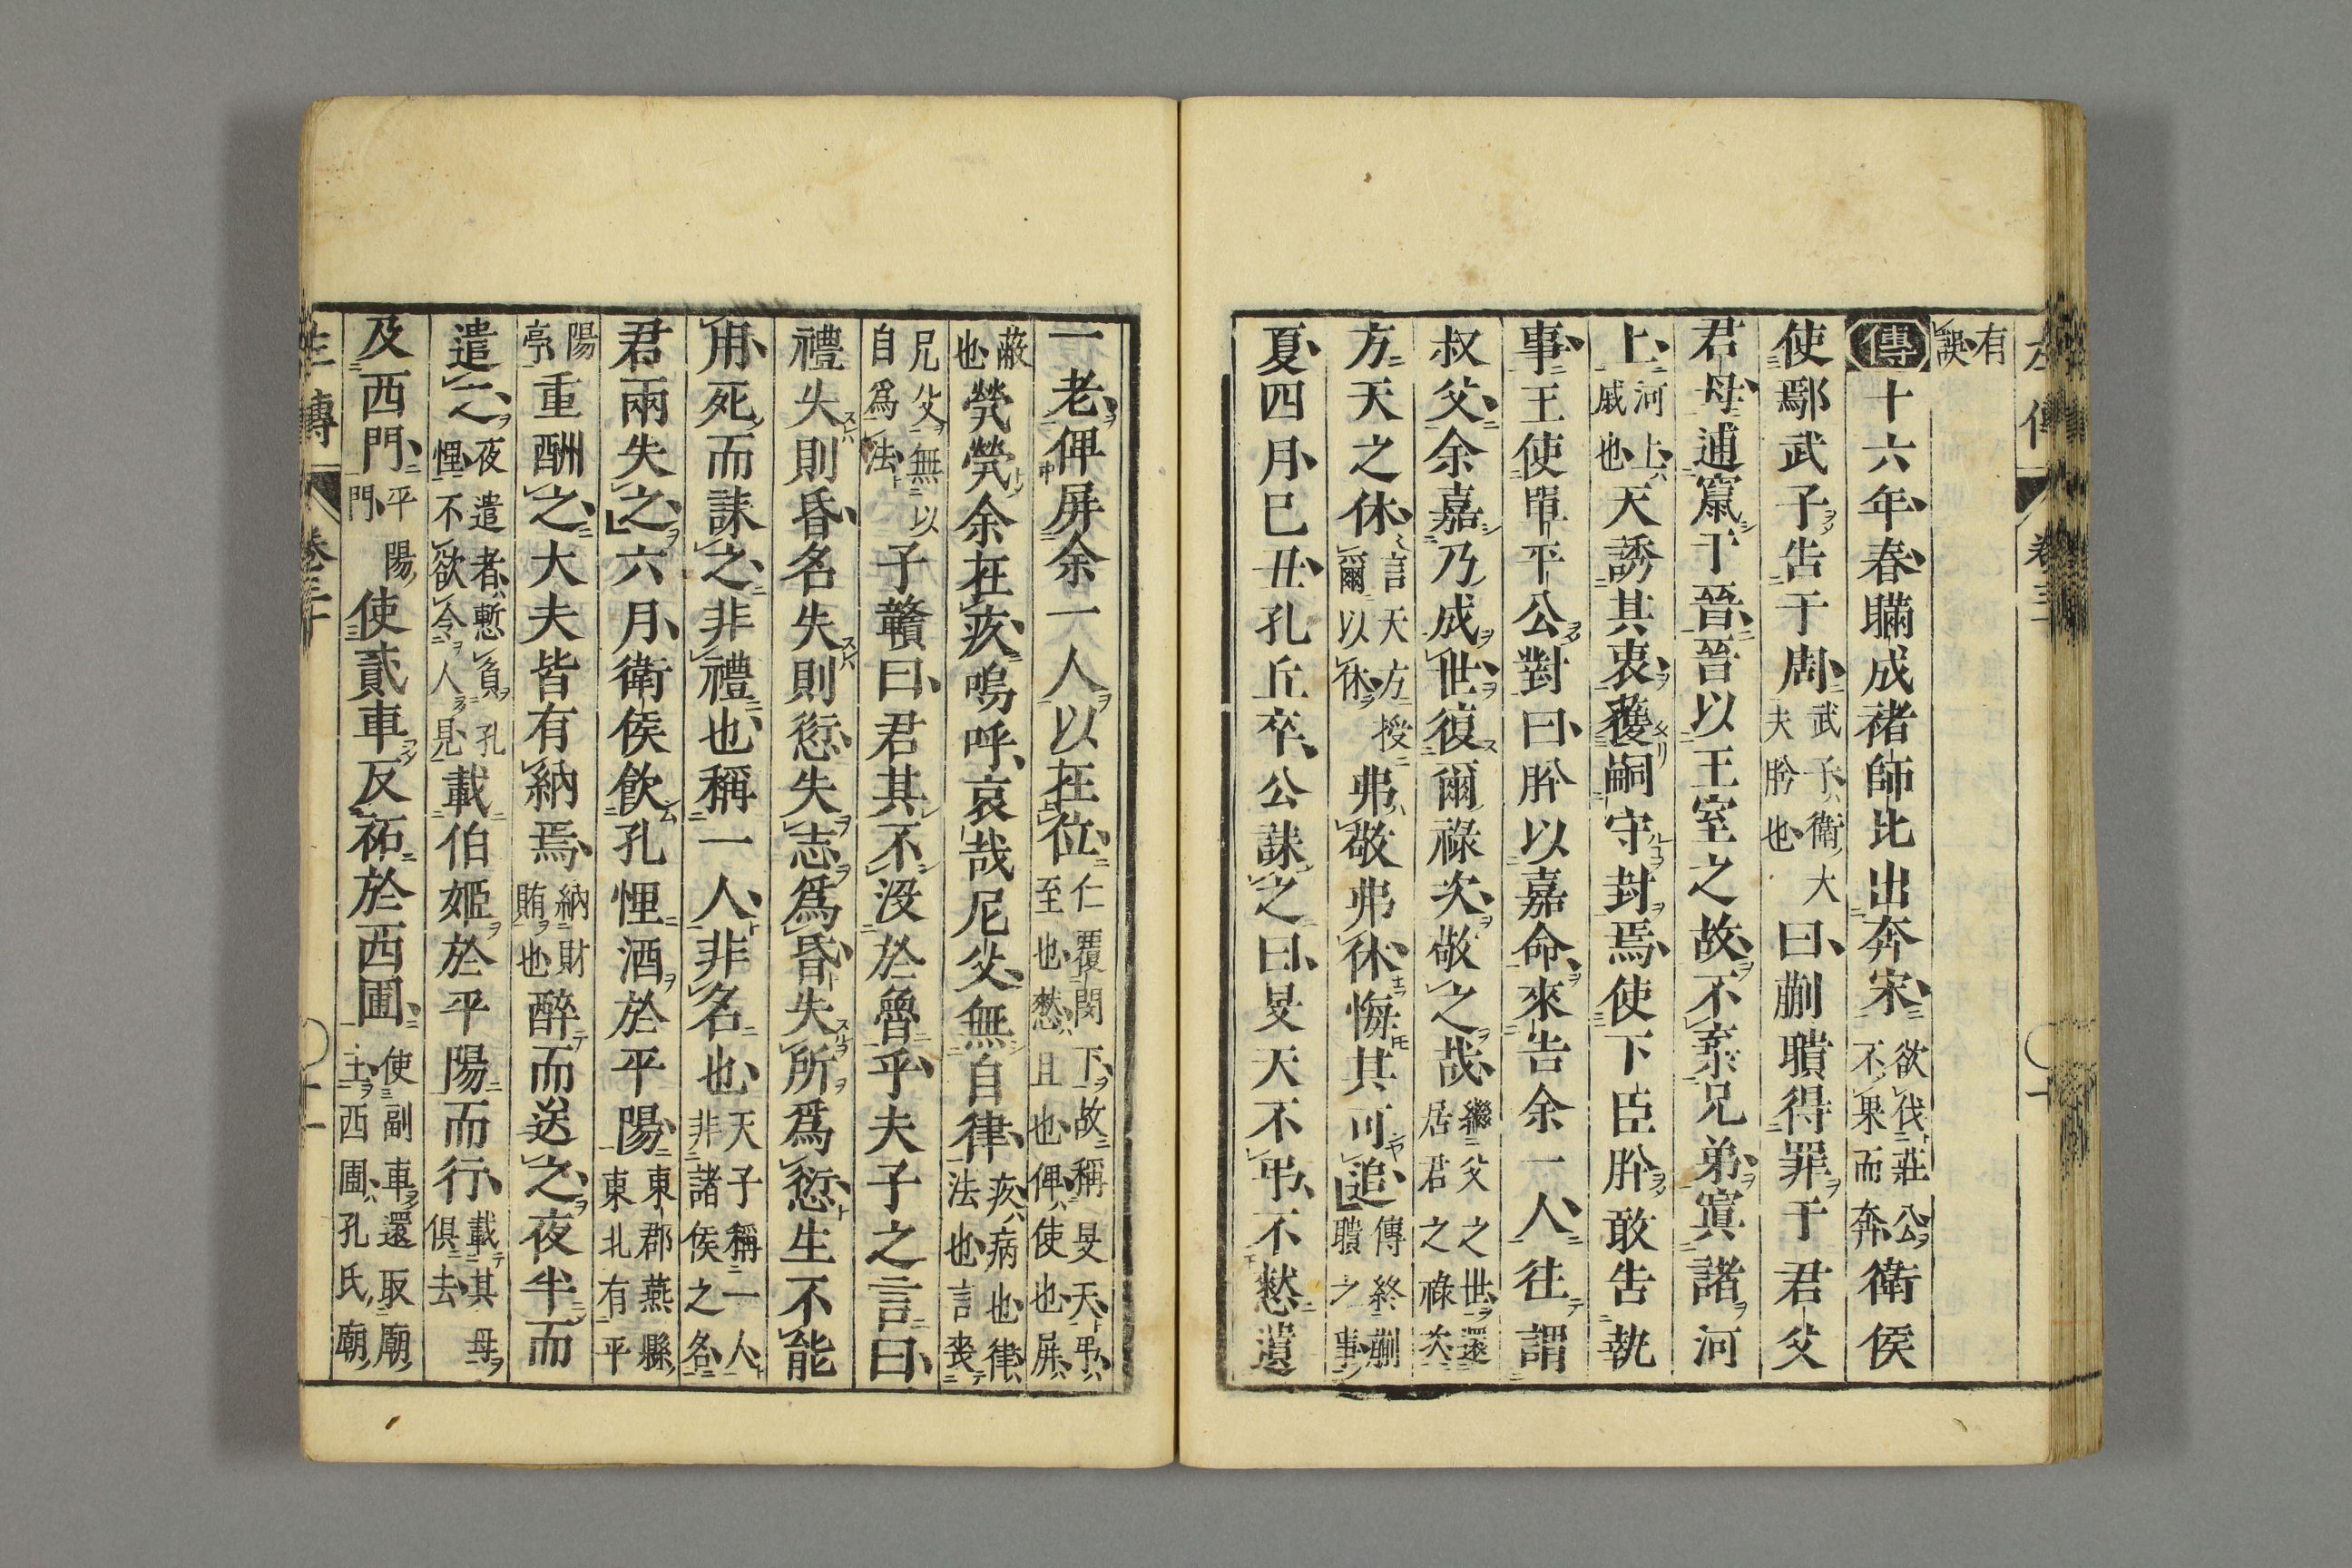 左傳 卷三十 ○十一
有誤
傳十六年春瞞成褚師比出奔宋欲伐莊公不果而奔衛侯
使鄢武子告于周武子衛大夫肸也曰蒯聵得罪于君父
君母逋竄于晉晉以王室之故不棄兄弟寘諸河
上河上戚也天誘其衷獲嗣守封焉使下臣肸敢告執
事王使單平公對曰肸以嘉命來告余一人往謂
叔父余嘉乃成世復爾祿次敬之哉繼父之世還居君之祿次
方天之休言天方授爾以休弗敬弗休悔其可追傳終蒯聵之事
夏四月己丑孔丘卒公誄之曰旻天不弔不憖遺
一老俾屏余一人以在位仁覆閔下故稱旻天弔至也憖且也俾使也屏
蔽也煢煢余在疚嗚呼哀哉尼父無自律疚病也律法也言喪
尼父無以自為法子贛曰君其不沒於魯乎夫子之言曰
禮失則昏名失則愆失志爲昏失所爲愆生不能
用死而誄之非禮也稱一人非名也天子稱一人非諸侯之名
君兩失之六月衛侯飲孔悝酒於平陽東郡燕縣東北有平
陽亭重酬之大夫皆有納焉納財賄也醉而送之夜半而
遣之夜遣者慙負孔悝不欲令人見載伯姬於平陽而行載其母俱去
及西門平陽門使貳車反祏於西圃使副車還取廟主西圃孔氏廟
左傳 卷三十 ○十一